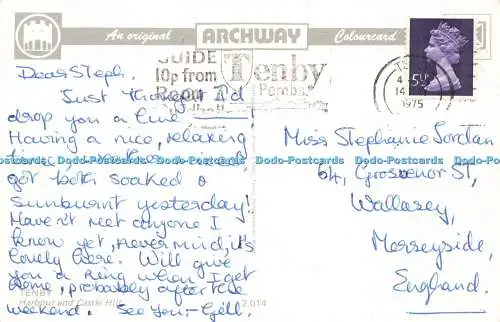 An original ARCHWAY Colourcard
GUIDE
10p from
Room
Tenby
Pembs.
5½P
14
1975
Dear Steph,
Just thought I'd
drop you a line.
Having a nice, relaxing
got both soaked &
sunburnt yesterday!
Haven't met anyone I
know yet, never mind, it's
lovely here. Will give
you a ring when I get
home, probably after the
weekend. See you - Gill.
Miss Stephanie Jordan
64, Grosvenor St,
Wallasey,
Merseyside,
England.
TENBY
Harbour and Castle Hill
2.014
Dodo-Postcards Dodo-Postcards Dodo-Postcards Dodo-Postcards Dodo-Postcards Dodo-Postcards